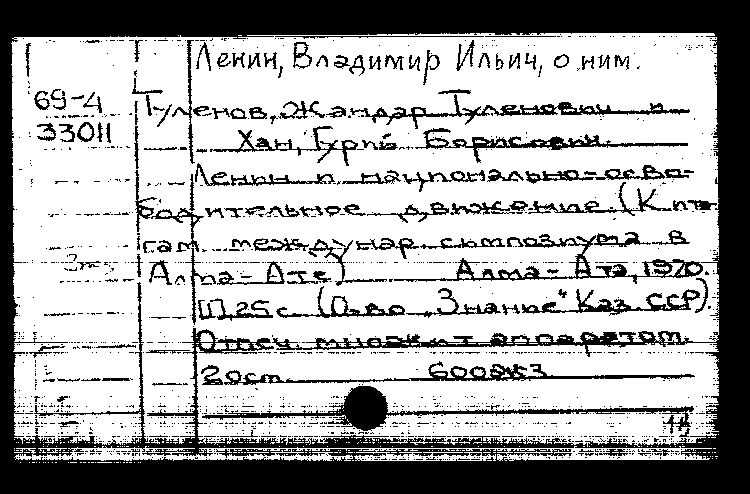 Ленин, Владимир Ильич, о ним.
69-4
33011
Туленов, Жандар Туленович и
Хан, Гурий Борисович.
Ленин и национально-осво-
бодительное движение. (К ито-
гам междунар. симпозиума в
Алма-Ате) Алма-Ата, 1970.
25 с. (О-во „Знание" Каз. ССР).
Отпеч. множит. аппаратом.
20см. 600экз